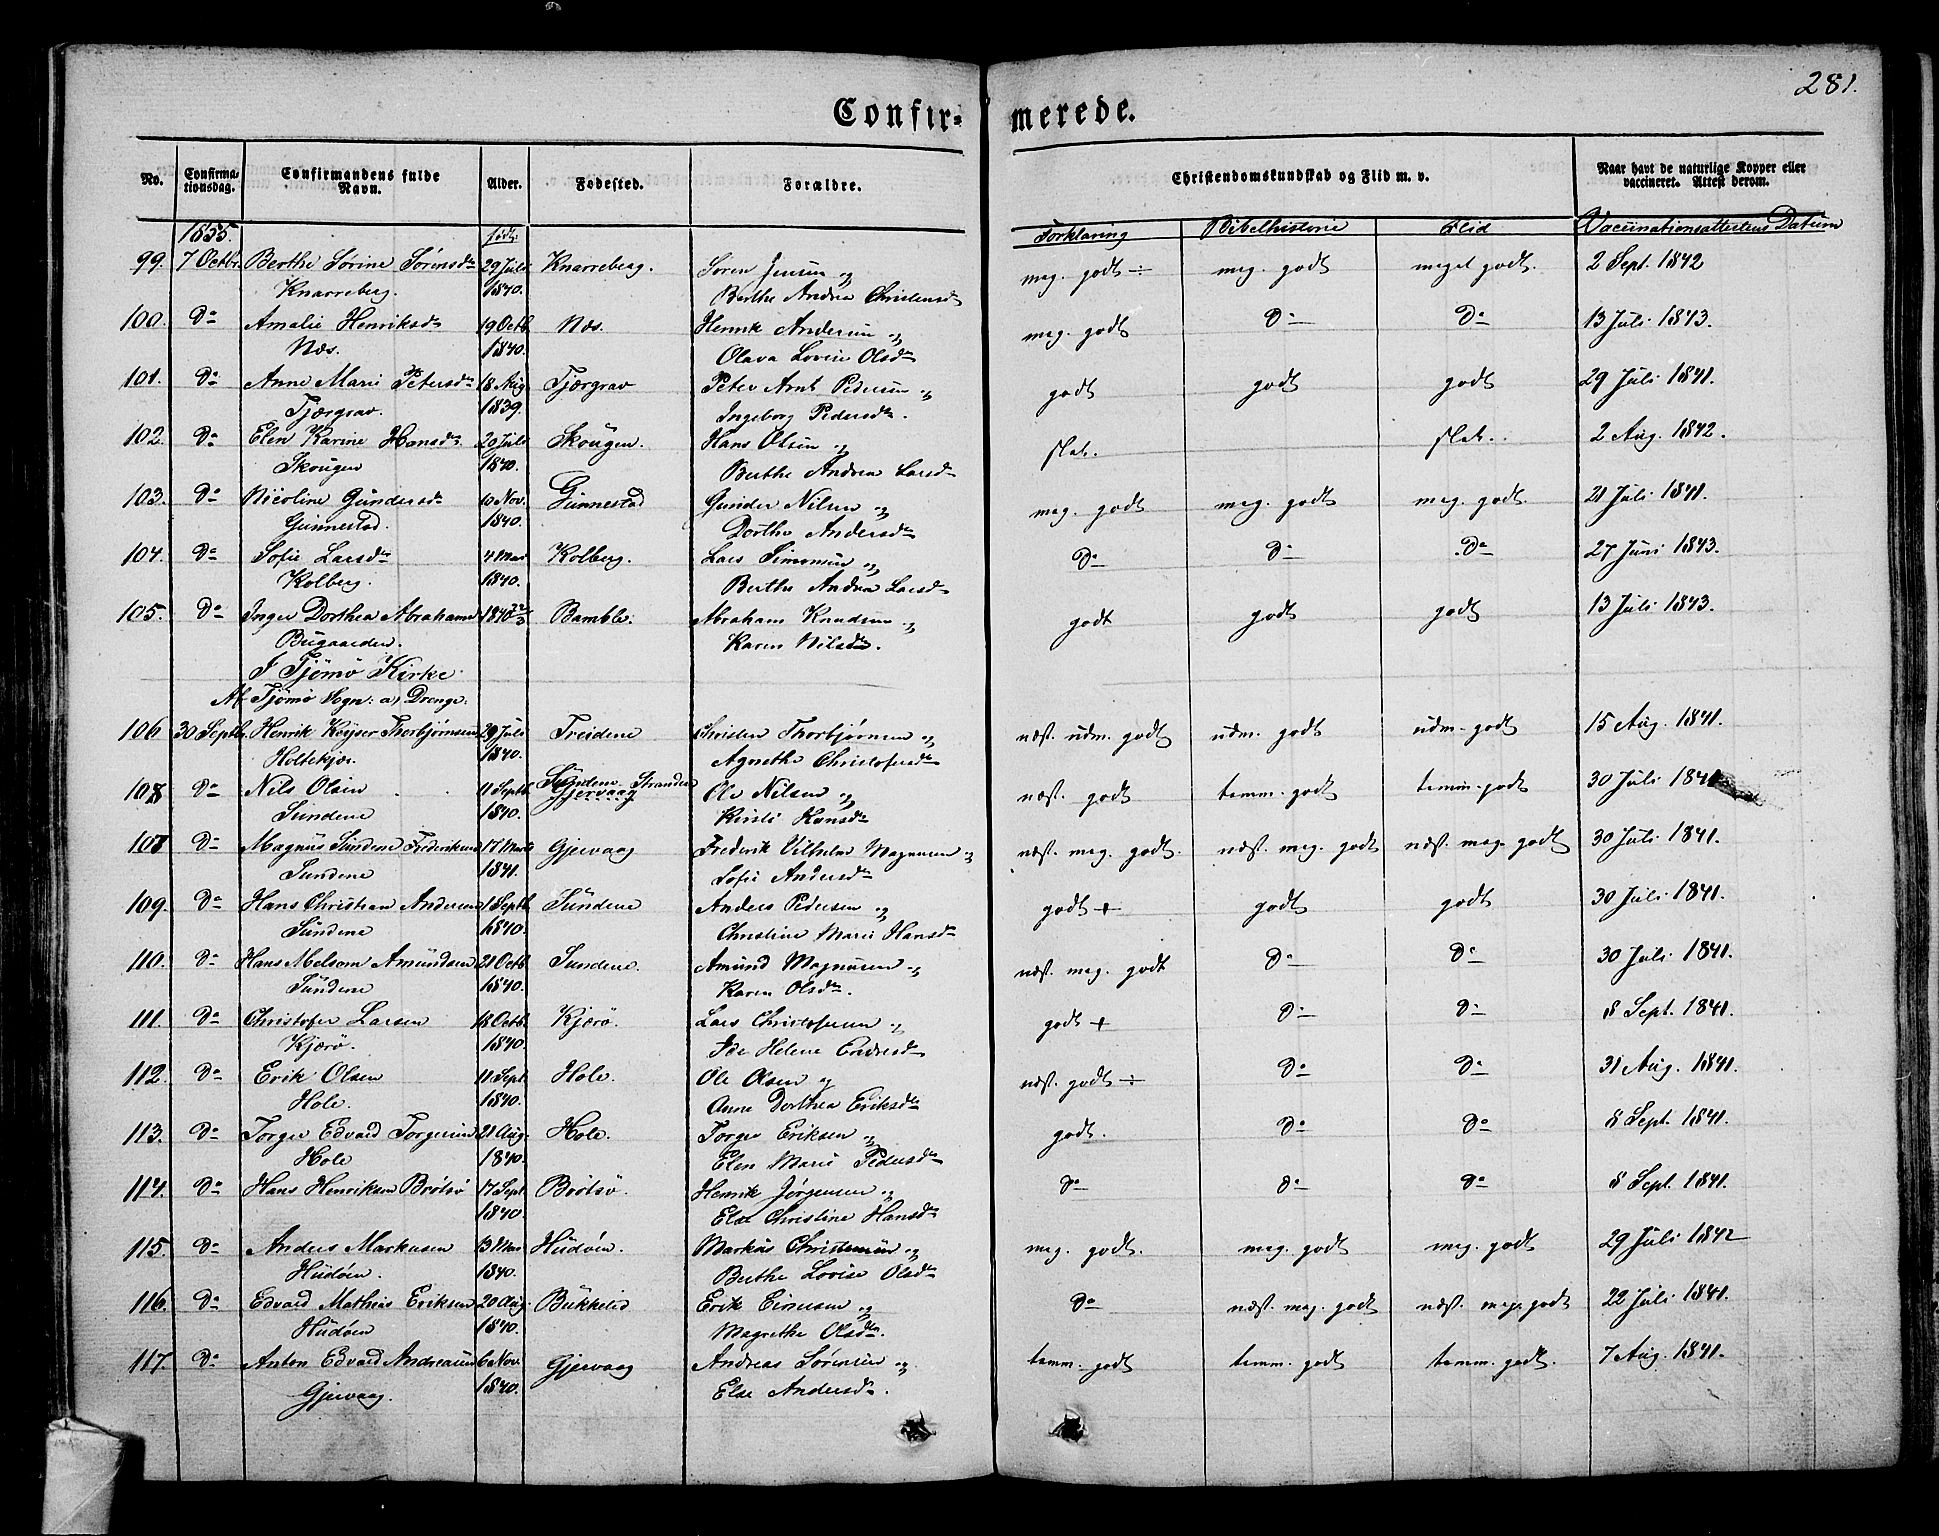 281.
Confir- merede.
No. Confirmationsdag. Confirmandens fulde Navn. Alder. Fødested. Forældre. Christendomskundskab og Flid m. v. Naar havt de naturlige Kopper eller vaccineret. Attest derom.
1855. født Forklaring Bibelhistorie Flid Vaccinationsattestens Datum
99. 7 Octbr. Berthe Sørine Sørensd. 29 Juli Knarreberg. Søren Jensen og meg. godt ÷ meg. godt meget godt. 2 Sept. 1842
Knarreberg. 1840. Berthe Andrea Christensd.
100. Do Amalie Henriksd. 19 Octb. Næs. Henrik Andersen og meg. godt Do Do 13 Juli 1843.
Næs. 1840. Olava Lovise Olsd.
101. Do Anne Marie Petersd. 18 Aug. Tjærgrav Peter Arnt Pedersen og godt godt godt 29 Juli 1841.
Tjærgrav. 1839. Ingeborg Pedersd.
102. Do Elen Karine Hansd. 20 Juli Skougen. Hans Olsen og slet. slet. 2 Aug. 1842.
Skougen 1840. Berthe Andrea Larsd.
103. Do Nicoline Gundersd. 10 Nov. Gunnestad Gunder Nilsen og meg. godt meg. godt meg. godt. 21 Juli 1841.
Gunnestad. 1840. Dorthe Andersd.
104. Do Sofie Larsd. 4 Mar Kolberg. Lars Simonsen og Do Do Do 27 Juni 1843.
Kolberg. 1840. Berthe Andrea Larsd.
105. Do Inger Dorthea Abrahams 1840 Bamble. Abraham Knudsen og godt godt godt 13 Juli 1843.
Bugaarden. Karen Nilsd.
I Tjømø Kirke
Af Tjømø Sogn: a) Drenge.
106 30 Septb. Henrik Keyser Thorbjørnsen 29 Juli Treidene Christen Thorbjørnsen og næst. udm. godt udm. godt udm. godt 15 Aug. 1841.
Holtekjær. 1840. Agnethe Christofersd.
108 Do Nils Olsen 11 Septb. Sundene Stranden Gjervaag Ole Nilsen og næst. godt temm. godt temm. godt 30 Juli 1841
Sundene 1840. Kirsti Hansd.
107 Do Magnus Sundene Frederiksen 17 Marts Gjervaag Frederik Vilhelm Magnusen og næst. meg. godt. næst. meg. godt næst. meg. godt 30 Juli 1841.
Sundene 1841. Sofie Andersd.
109. Do Hans Christian Andersen 1 Septb. Sundene Anders Pedersen og godt + godt godt 30 Juli 1841.
Sundene 1840. Christine Marie Hansd.
110. Do Hans Melsom Amundsen 21 Octb. Sundene. Amund Magnusen og næst. meg. godt Do Do 30 Juli 1841.
Sundene 1840. Karen Olsd.
111. Do Christofer Larsen 18 Octb. Kjærø. Lars Christofersen og godt + Do Do 8 Sept. 1841.
Kjærø. 1840. Ide Helene Endresd.
112. Do Erik Olsen 11 Sept. Hole. Ole Olsen og næst. godt ÷ Do Do 31 Aug. 1841.
Hole. 1840. Anne Dorthea Eriksd.
113. Do Torger Edvard Torgersen 21 Aug. Hole. Torger Eriksen og godt. Do Do 8 Sept. 1841.
Hole 1840. Elen Marie Pedersd.
114. Do Hans Henriksen Brøtsø 17 Sept. Brøtsø. Henrik Jørgensen og Do Do Do 8 Sept. 1841.
1840. Else Christine Hansd.
115. Do Anders Markusen 13 Mar Hudøen. Markus Christensen og meg. godt. meg. godt meg. godt 29 Juli 1842
Hudøen. 1840. Berthe Lovise Olsd.
116. Do Edvard Mathias Eriksen 20 Aug. Bukkelid Erik Einersen og Do næst. meg. godt næst. meg. godt 22 Juli 1841.
Hudøen 1840. Magrethe Olsd.
117. Do Anton Edvard Andreasen 6 Nov. Gjervaag Andreas Sørensen og temm. godt temm. godt temm. godt. 7 Aug. 1841.
Gjervaag. 1840. Else Andersd.